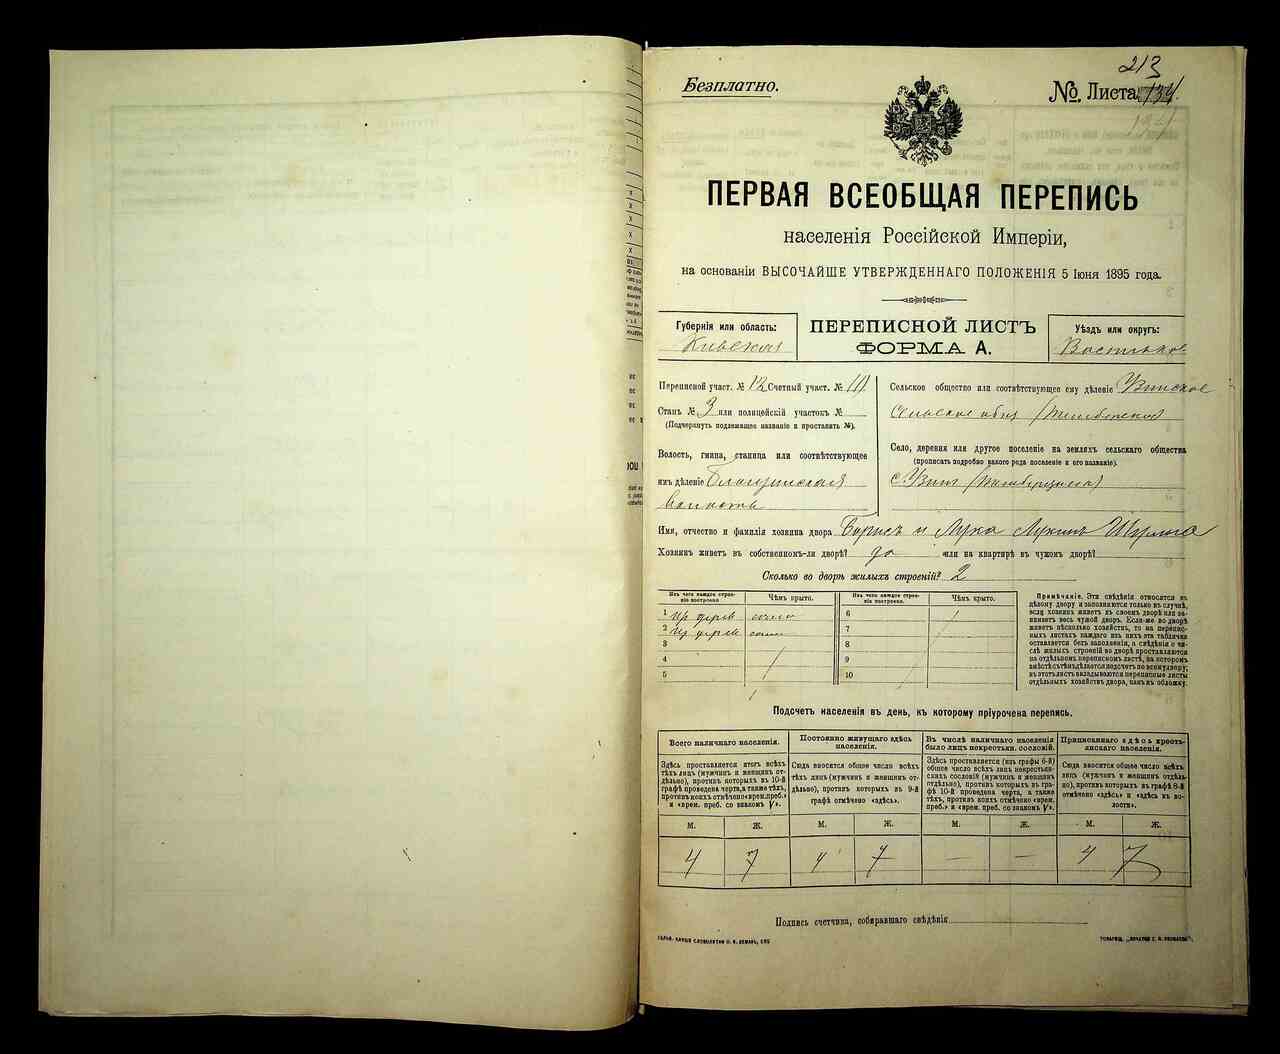 213
Безплатно.
№ Листа 134.
ПЕРВАЯ ВСЕОБЩАЯ ПЕРЕПИСЬ
населенія Россійской Имперіи,
на основаніи ВЫСОЧАЙШЕ УТВЕРЖДЕННАГО ПОЛОЖЕНІЯ 5 Іюня 1895 года.
Губернія или область:
Кіевская
ПЕРЕПИСНОЙ ЛИСТЪ
ФОРМА А.
Уѣздъ или округъ:
Переписной участ. № 12 Счетный участ. №
Станъ № 3 или полицейскій участокъ №
(Подчеркнуть подлежащее названіе и проставить №).
Волость, гмина, станица или соотвѣтствующее
имъ дѣленіе
волость
Сельское общество или соотвѣтствующее ему дѣленіе
Сельское общ
Село, деревня или другое поселеніе на земляхъ сельскаго общества
(прописать подробно какого рода поселеніе и его названіе).
с.
Имя, отчество и фамилія хозяина двора Борисъ и Лука Лукинъ
Хозяинъ живетъ въ собственномъ-ли дворѣ? да или на квартирѣ въ чужомъ дворѣ?
Сколько во дворѣ жилыхъ строеній? 2
Изъ чего каждое строеніе построено
Чѣмъ крыто.
Изъ чего каждое строеніе построено.
Чѣмъ крыто.
1 изъ дерев
2 изъ дерев
3
4
5
6
7
8
9
10
Примѣчаніе. Эти свѣдѣнія относятся къ
цѣлому двору и заполняются только въ случаѣ,
если хозяинъ живетъ въ своемъ дворѣ или занимаетъ весь чужой дворъ. Если-же во дворѣ
живетъ нѣсколько хозяйствъ, то на переписныхъ листахъ каждаго изъ нихъ эта табличка
оставляется безъ заполненія, а свѣдѣнія о числѣ жилыхъ строеній во дворѣ проставляются
на отдѣльномъ переписномъ листѣ, на которомъ
вмѣстѣ съ тѣмъ дѣлается подсчетъ по всему двору;
въ этотъ листъ вкладываются переписные листы
отдѣльныхъ хозяйствъ двора, какъ въ обложку.
Подсчетъ населенія въ день, къ которому пріурочена перепись.
Всего наличнаго населенія.
Здѣсь проставляется итогъ всѣхъ
тѣхъ лицъ (мужчинъ и женщинъ отдѣльно), противъ которыхъ въ 10-й
графѣ проведена черта, а также тѣхъ,
противъ коихъ отмѣчено «врем. преб.»
и «врем. преб. со знакомъ V».
Постоянно живущаго здѣсь
населенія.
Сюда вносится общее число всѣхъ
тѣхъ лицъ (мужчинъ и женщинъ отдѣльно), противъ которыхъ въ 9-й
графѣ отмѣчено «здѣсь».
Въ числѣ наличнаго населенія
было лицъ некрестьян. сословій.
Здѣсь проставляется (изъ графы 6-й)
общее число всѣхъ лицъ некрестьянскихъ сословій (мужчинъ и женщинъ
отдѣльно), противъ которыхъ въ графѣ 10-й проведена черта, а также
тѣхъ, противъ коихъ отмѣчено «врем.
преб.» и «врем. преб. со знакомъ V».
Приписаннаго здѣсь крестьянскаго населенія.
Сюда вносится общее число всѣхъ
лицъ (мужчинъ и женщинъ отдѣльно), противъ которыхъ въ графѣ 8-й
отмѣчено «здѣсь» и «здѣсь въ волости».
М. Ж. М. Ж. М. Ж. М. Ж.
4 7 4 7 — — 4 7
Подпись счетчика, собиравшаго свѣдѣнія